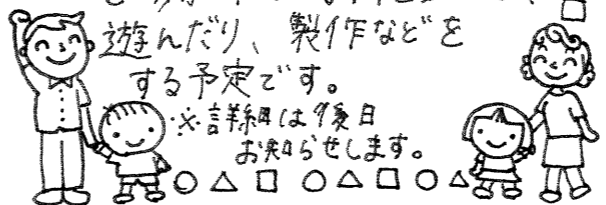 遊んだり、製作などを
する予定です。
※詳細は後日
お知らせします。